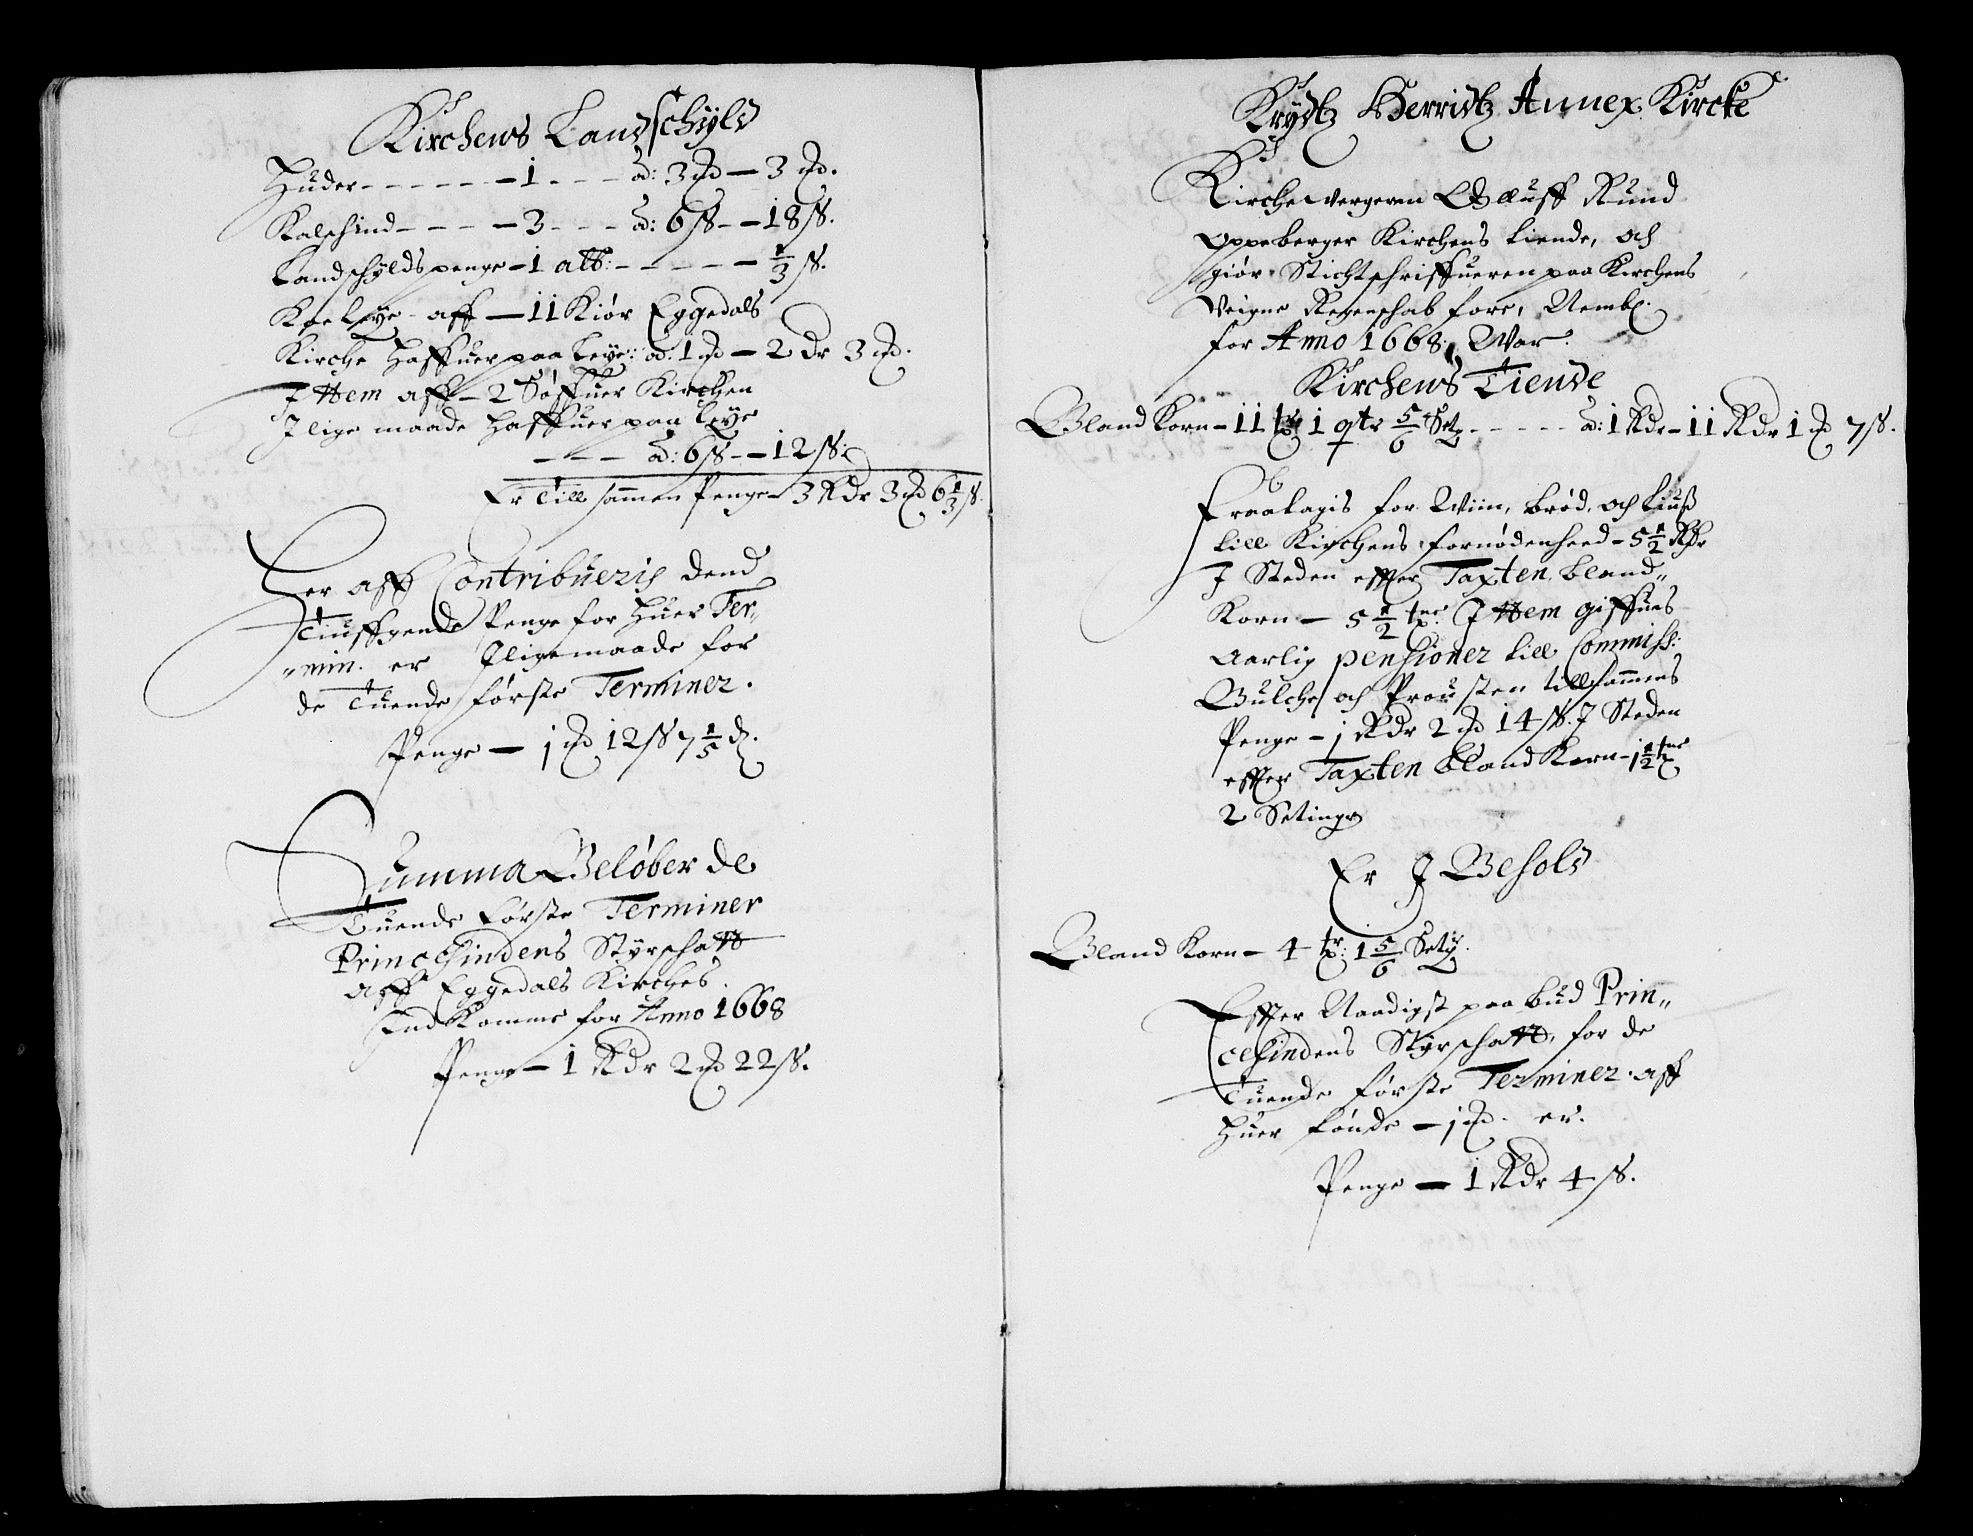 Kirchens Landschyld
Huder - - - - - - 1 - - - ad: 3 mk — 3 mk.
Kalfskind - - - - 3 - - - ad: 6 ss — 18 ss.
Landschylds penge - 1 alb: - - - - - 1/3 ss.
Koe Leye - aff — 11 Kiør Eggedals
Kirche Haffuer paa Leye: ad: 1 mk — 2 dr 3 mk.
Jttem aff — 2 Søffuer Kirchen
Jlige maade Haffuer paa Leye
- - - ad: 6 ss — 12 ss.
Er Till sammen Penge — 3 Rdr 3 mk 6 1/3 ss.
Her aff Contribueris dend
Tiuffgende Penge for Huer Ter„
„min. er Jligemaade for
de Tuende første Terminer.
Penge — j mk 12 ss 7 1/5 d.
Summa Beløber de
Tuende første Terminer
Princessindens Styrschatt
aff Eggedals Kirches
IndKomme for Anno 1668
Penge — 1 Rdr 2 mk 22 ss.
Krydtz Herridtz Annex Kircke
Kirchewergeren Oluff Rund
Oppeberger Kirchens tiende, och
giør Stichtschriffueren paa Kirchens
Veigne Regenschab fore, Nembl.
for Anno 1668. War.
Kirchens Tiende
Bland Korn — 11 tr 1 qtr 5/6 Setg - - - - - ad: 1 Rdr — 11 Rdr 1 mk 7 ss.
Fraalagis for Wiin, brød, och Liuß
till Kirchens fornødenheed — 5 1/2 Rdr
J Steden effter Taxten bland„
Korn — 5 1/2 tnr. Jttem giffues
Aarlig pensioner till Commiss:
Bulche och Prousten tillsammens
Penge — j Rdr 2 mk 14 ss. J Steden
effter Taxten bland Korn — 1 1/2 tnr
2 Setinger
Er J Behold
Bland Korn — 4 tr: 1 5/6 Setg.
Effter Naadigst paabud Prin„
cessindens Styrschatt, for de
Tuende første Terminer. aff
Huer tønde — j mk. er.
Penge — 1 Rdr 4 ss.